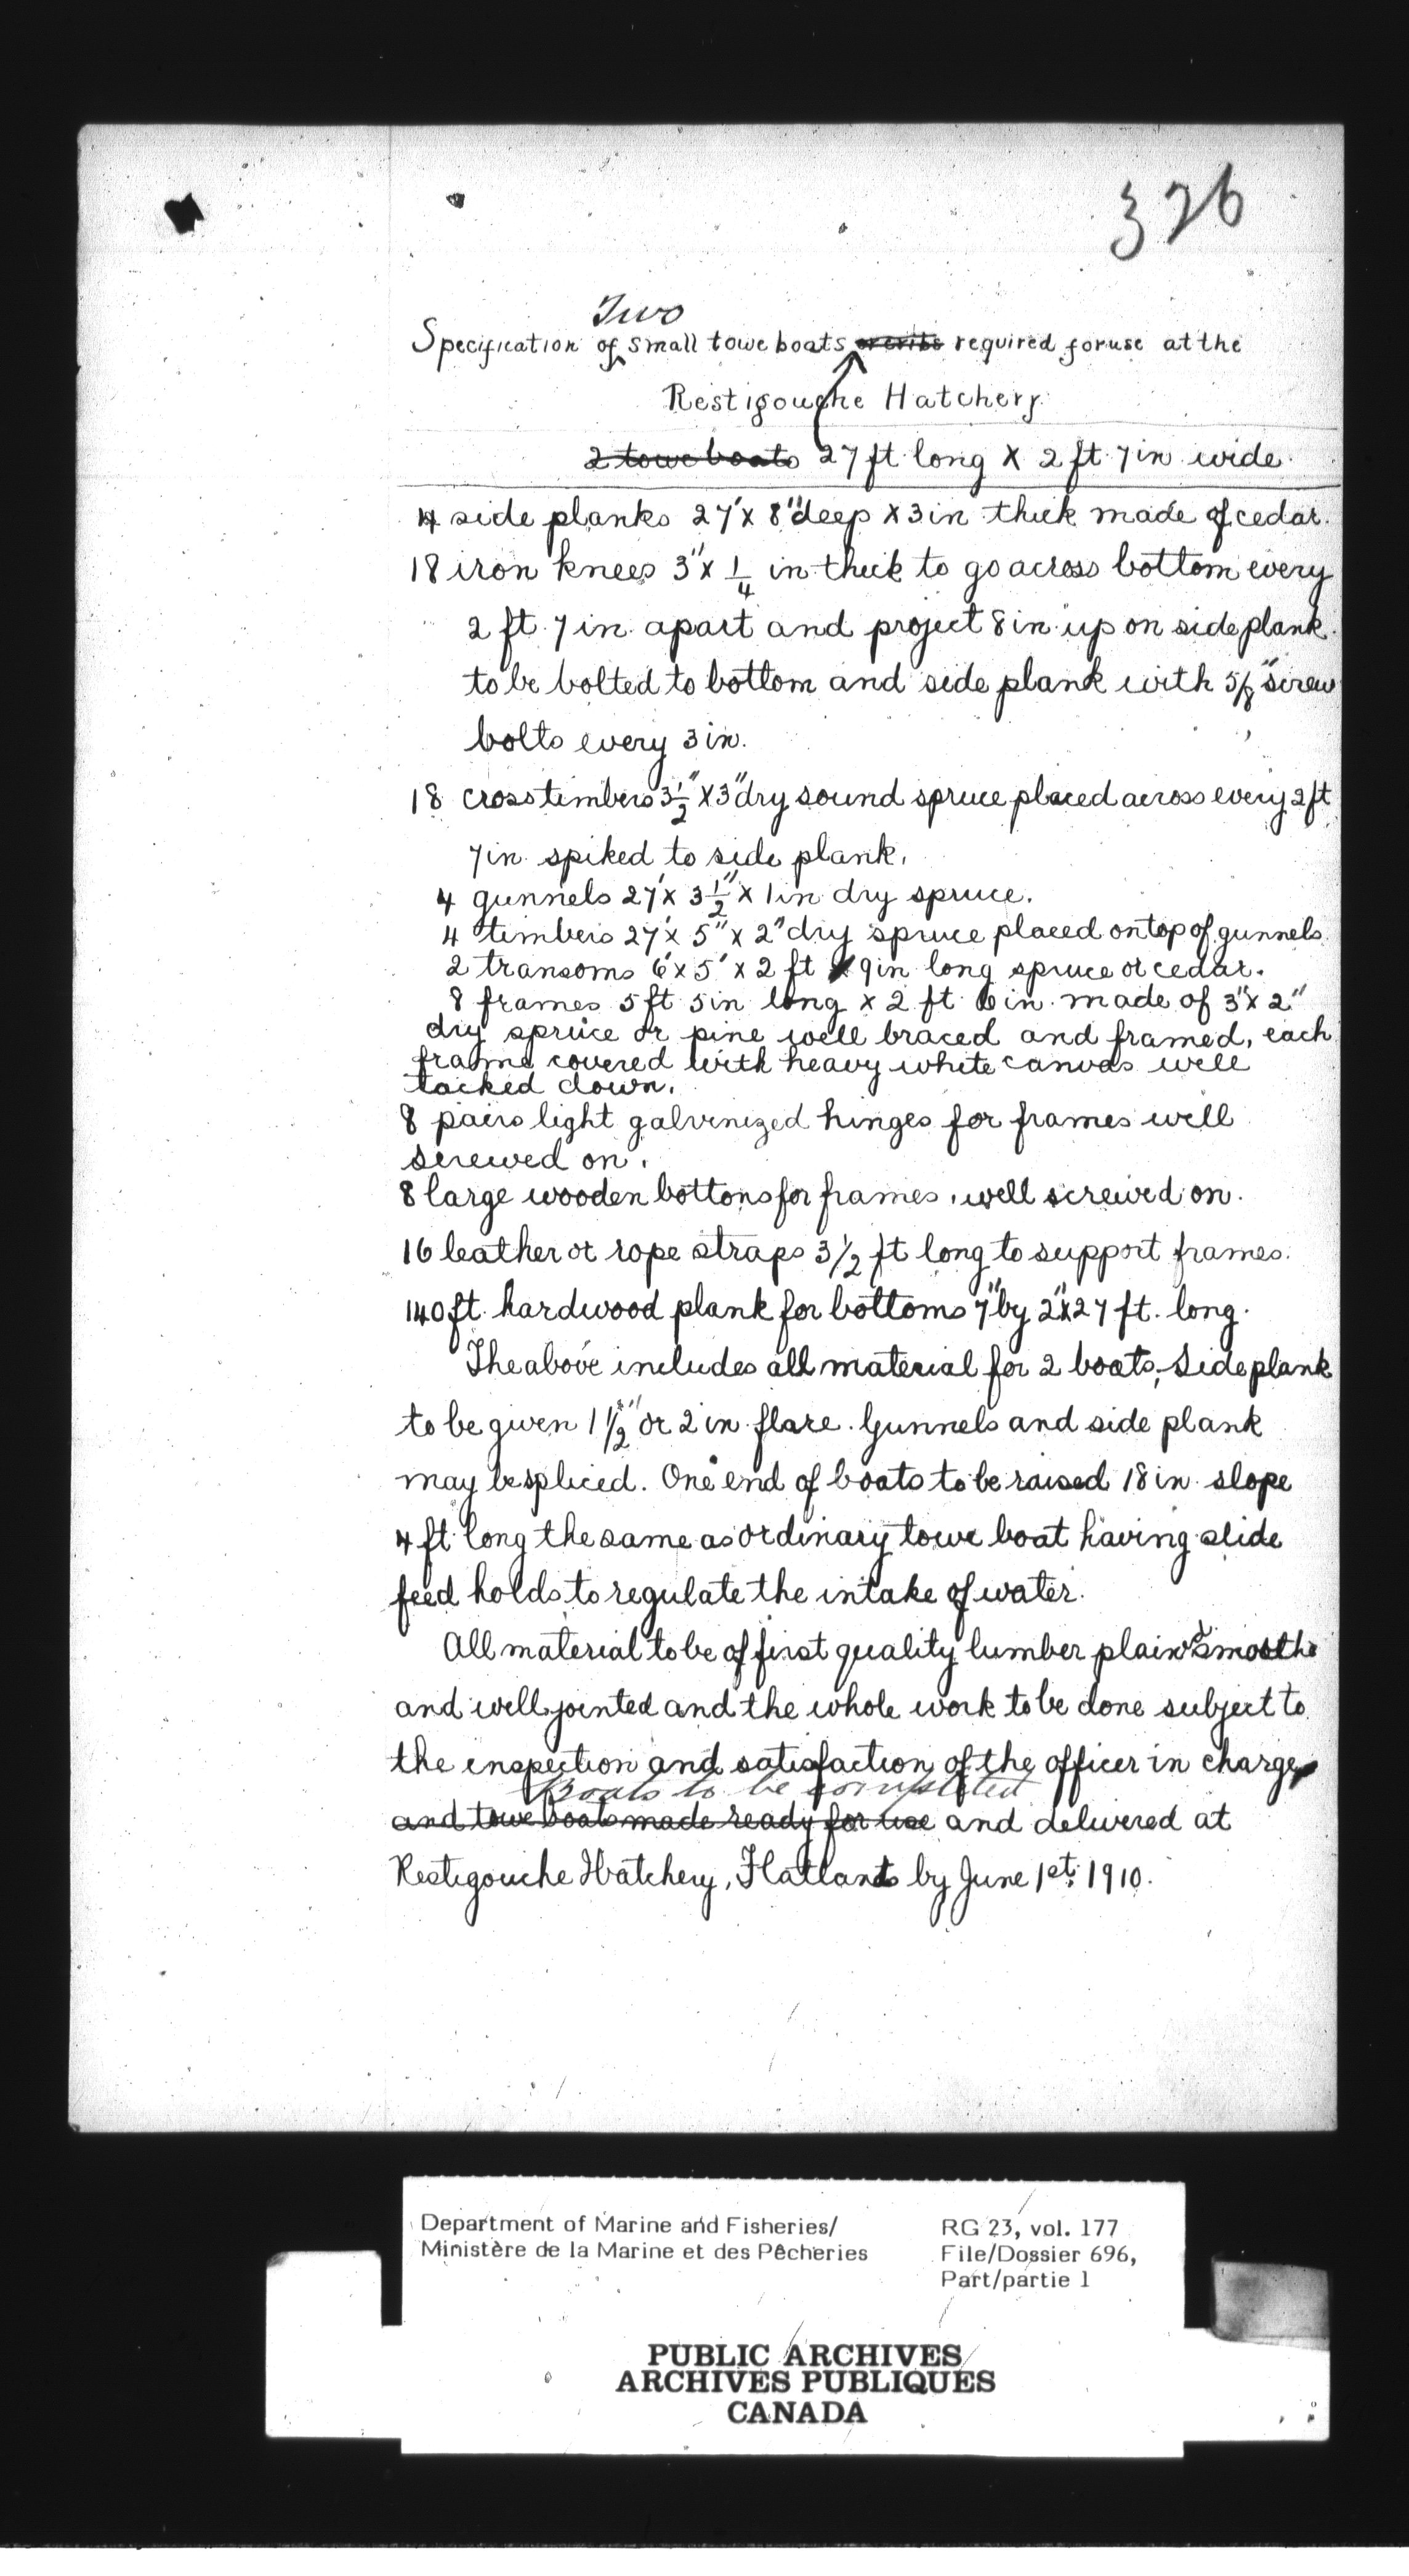 326
Two
Specification of small towe boats or cribs required for use at the
Restigouche Hatchery.
2 towe boats 27 ft long X 2 ft 7 in wide
4 side planks 27' x 8" deep x 3 in thick made of cedar.
18 iron knees 3" x 1/4 in thick to go across bottom every
2 ft. 7 in. apart and project 8 in up on side plank.
to be bolted to bottom and side plank with 5/8" screw
bolts every 3 in.
18 cross timbers 3 1/2" X 3" dry sound spruce placed across every 2 ft
7 in spiked to side plank.
4 gunnels 27' x 3 1/2" x 1 in dry spruce.
4 timbers 27' x 5" x 2" dry spruce placed on top of gunnels
2 transoms 6' x 5' x 2 ft 9 in long spruce or cedar.
8 frames 5 ft 5 in long x 2 ft 6 in. made of 3" x 2"
dry spruce or pine well braced and framed, each
frame covered with heavy white canvas well
tacked down.
8 pairs light galvinized hinges for frames well
screwed on.
8 large wooden bottons for frames, well screwed on.
16 leather or rope straps 3 1/2 ft long to support frames.
140 ft. hardwood plank for bottoms 7" by 2" x 27 ft. long.
The above includes all material for 2 boats, Side plank
to be given 1 1/2" or 2 in flare. Gunnels and side plank
may be spliced. One end of boats to be raised 18 in slope
4 ft long the same as ordinary towe boat having slide
feed holds to regulate the intake of water.
All material to be of first quality lumber plain smooth
and well jointed and the whole work to be done subject to
the inspection and satisfaction of the officer in charge
Boats to be completed
and towe boats made ready for use and delivered at
Restigouche Hatchery, Flatlands by June 1st. 1910.
Department of Marine and Fisheries/
Ministère de la Marine et des Pêcheries
RG 23, vol. 177
File/Dossier 696,
Part/partie 1
PUBLIC ARCHIVES
ARCHIVES PUBLIQUES
CANADA